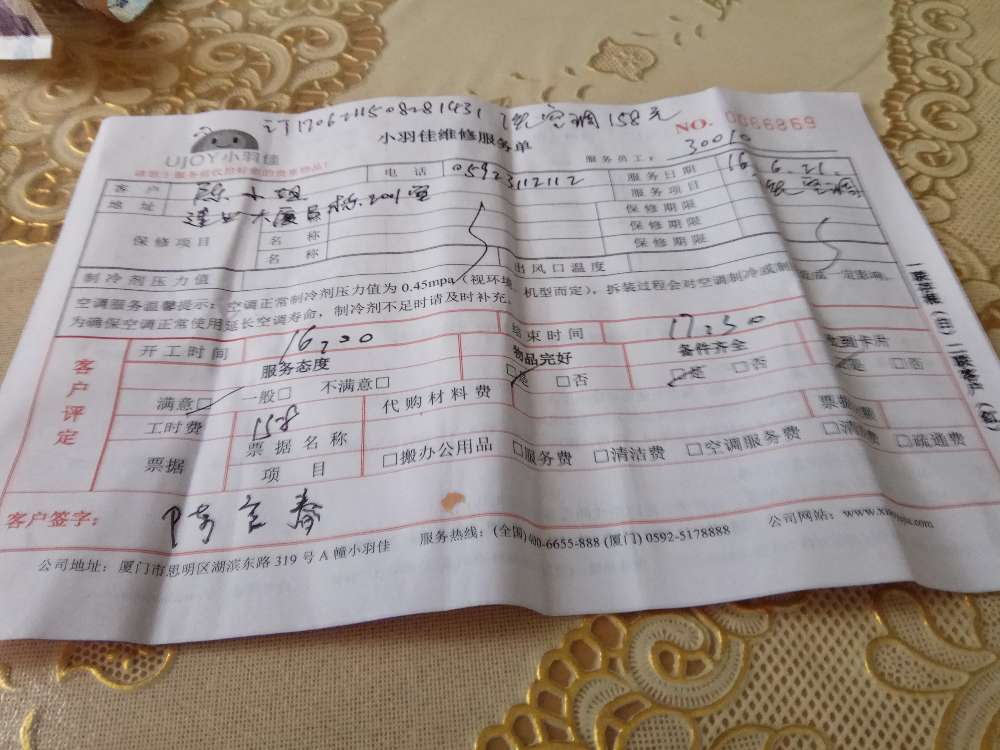 订1706211508281431 空调158元
UJOY小羽佳
小羽佳维修服务单
NO. 0066869
服务员工: 30010
客户 陈小姐 电话 05923112112 服务日期 16.6.21.
地址 大厦 201室 服务项目 空调
保修项目 名称 保修期限
名称 保修期限
保修期限
制冷剂压力值 出风口温度
空调服务温馨提示: 空调正常制冷剂压力值为 0.45mpa (视环境、机型而定), 拆装过程会对空调制冷或制 造成一定影响,
为确保空调正常使用延长空调寿命, 制冷剂不足时请及时补充。
客户评定
开工时间 16:00 结束时间 17:30
服务态度 物品完好 备件齐全 收到卡片
满意□ 一般□ 不满意□ □是 □否 □是 □否 □是 □否
工时费 158 代购材料费
票据 票据名称 票据金额
项目 □搬办公用品 □服务费 □清洁费 □空调服务费 □清洗费 □疏通费
客户签字:
公司地址: 厦门市思明区湖滨东路 319 号 A 幢小羽佳 服务热线: (全国) 400-6655-888 (厦门) 0592-5178888 公司网站:
一联存根 (白) 二联客户 (红)